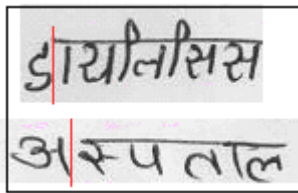 डायलिसिस
अस्पताल